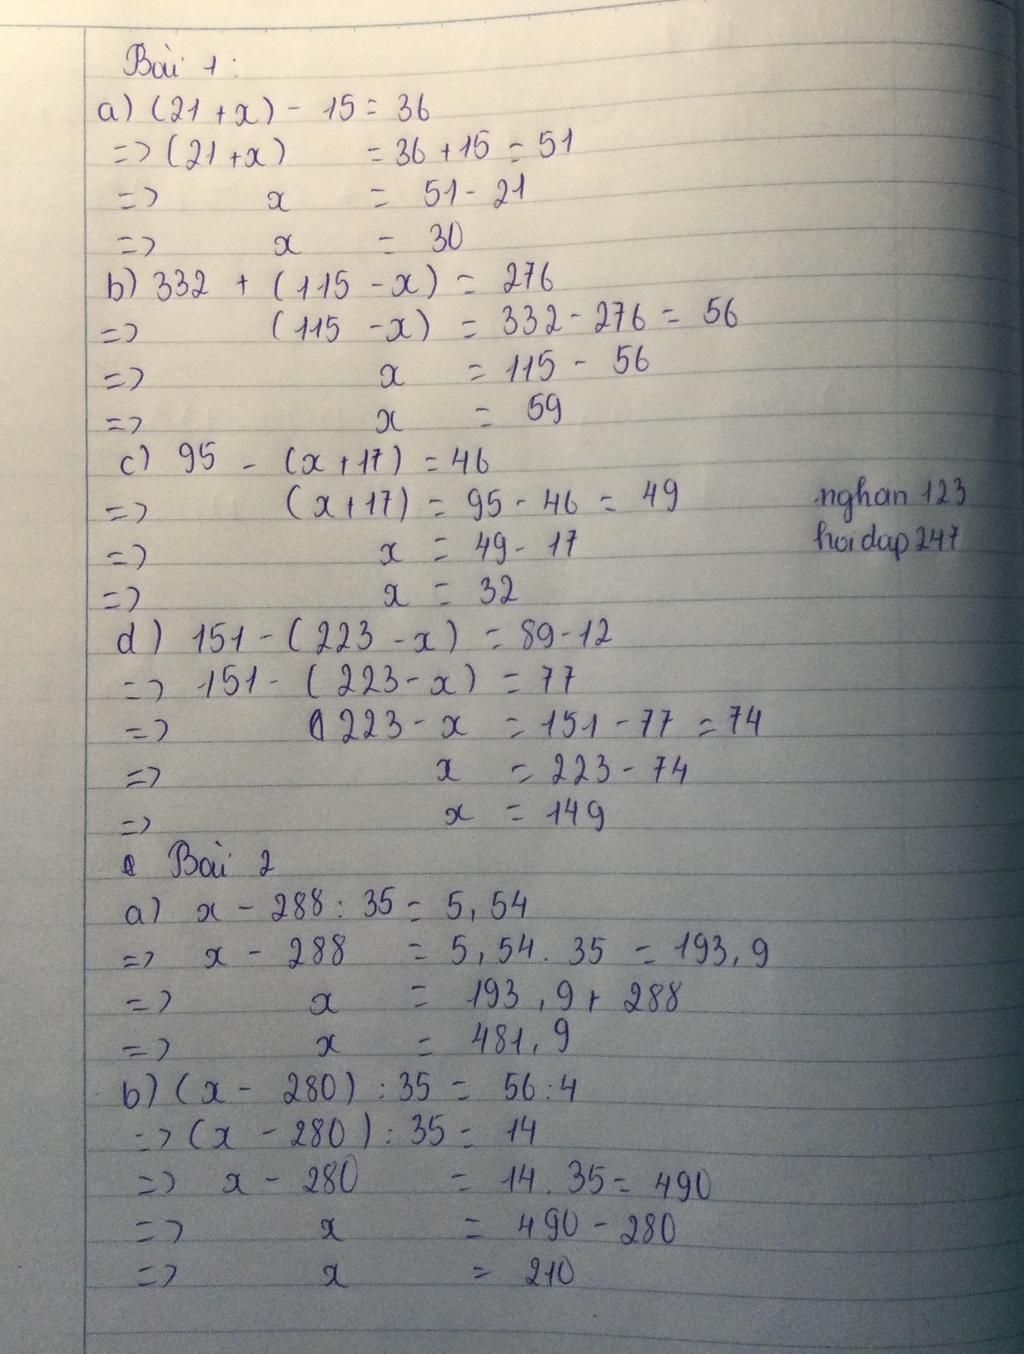 Bài 1:
a) (21 + x) - 15 = 36
=> (21 + x) = 36 + 15 = 51
=> x = 51 - 21
=> x = 30
b) 332 + (115 - x) = 276
=> (115 - x) = 332 - 276 = 56
=> x = 115 - 56
=> x = 59
c) 95 - (x + 17) = 46
=> (x + 17) = 95 - 46 = 49
nghan 123
=> x = 49 - 17
hoidap247
=> x = 32
d) 151 - (223 - x) = 89 - 12
=> 151 - (223 - x) = 77
=> 223 - x = 151 - 77 = 74
=> x = 223 - 74
=> x = 149
Bài 2
a) x - 288 : 35 = 5,54
=> x - 288 = 5,54 . 35 = 193,9
=> x = 193,9 + 288
=> x = 481,9
b) (x - 280) : 35 = 56 : 4
=> (x - 280) : 35 = 14
=> x - 280 = 14 . 35 = 490
=> x = 490 - 280
=> x = 210